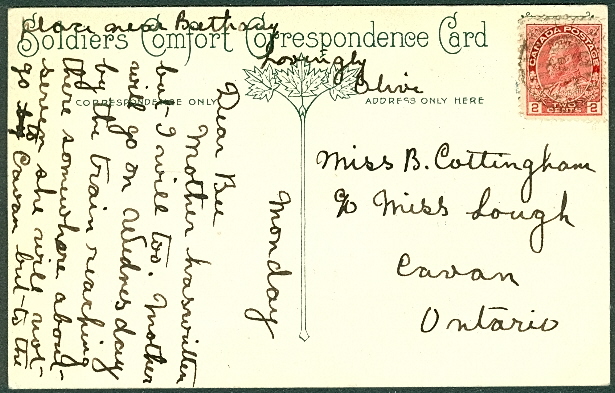 Soldiers Comfort Correspondence Card
CORRESPONDENCE ONLY
ADDRESS ONLY HERE
CANADA POSTAGE
2 2
TWO CENTS
Monday
Dear Bee
Mother has written
but I will too. Mother
will go on Wednesday
by the train reaching
there somewhere about
seven she will not
go to Cavan but to the
place near Bethsdy
Lovingly
Olive
Miss B. Cottingham
c/o Miss Lough
Cavan
Ontario